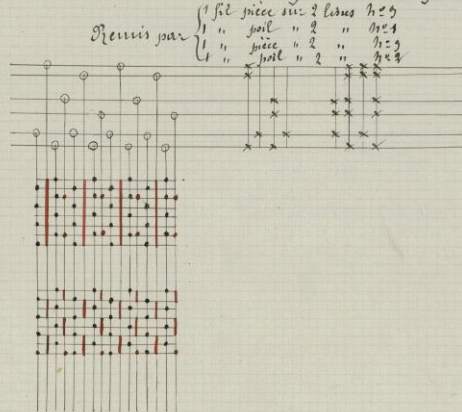 Remis par
1 fil pièce sur 2 lisses nº 3
1 " poil " 2 " nº 1
1 " pièce " 2 " nº 3
1 " poil " 2 " nº 2